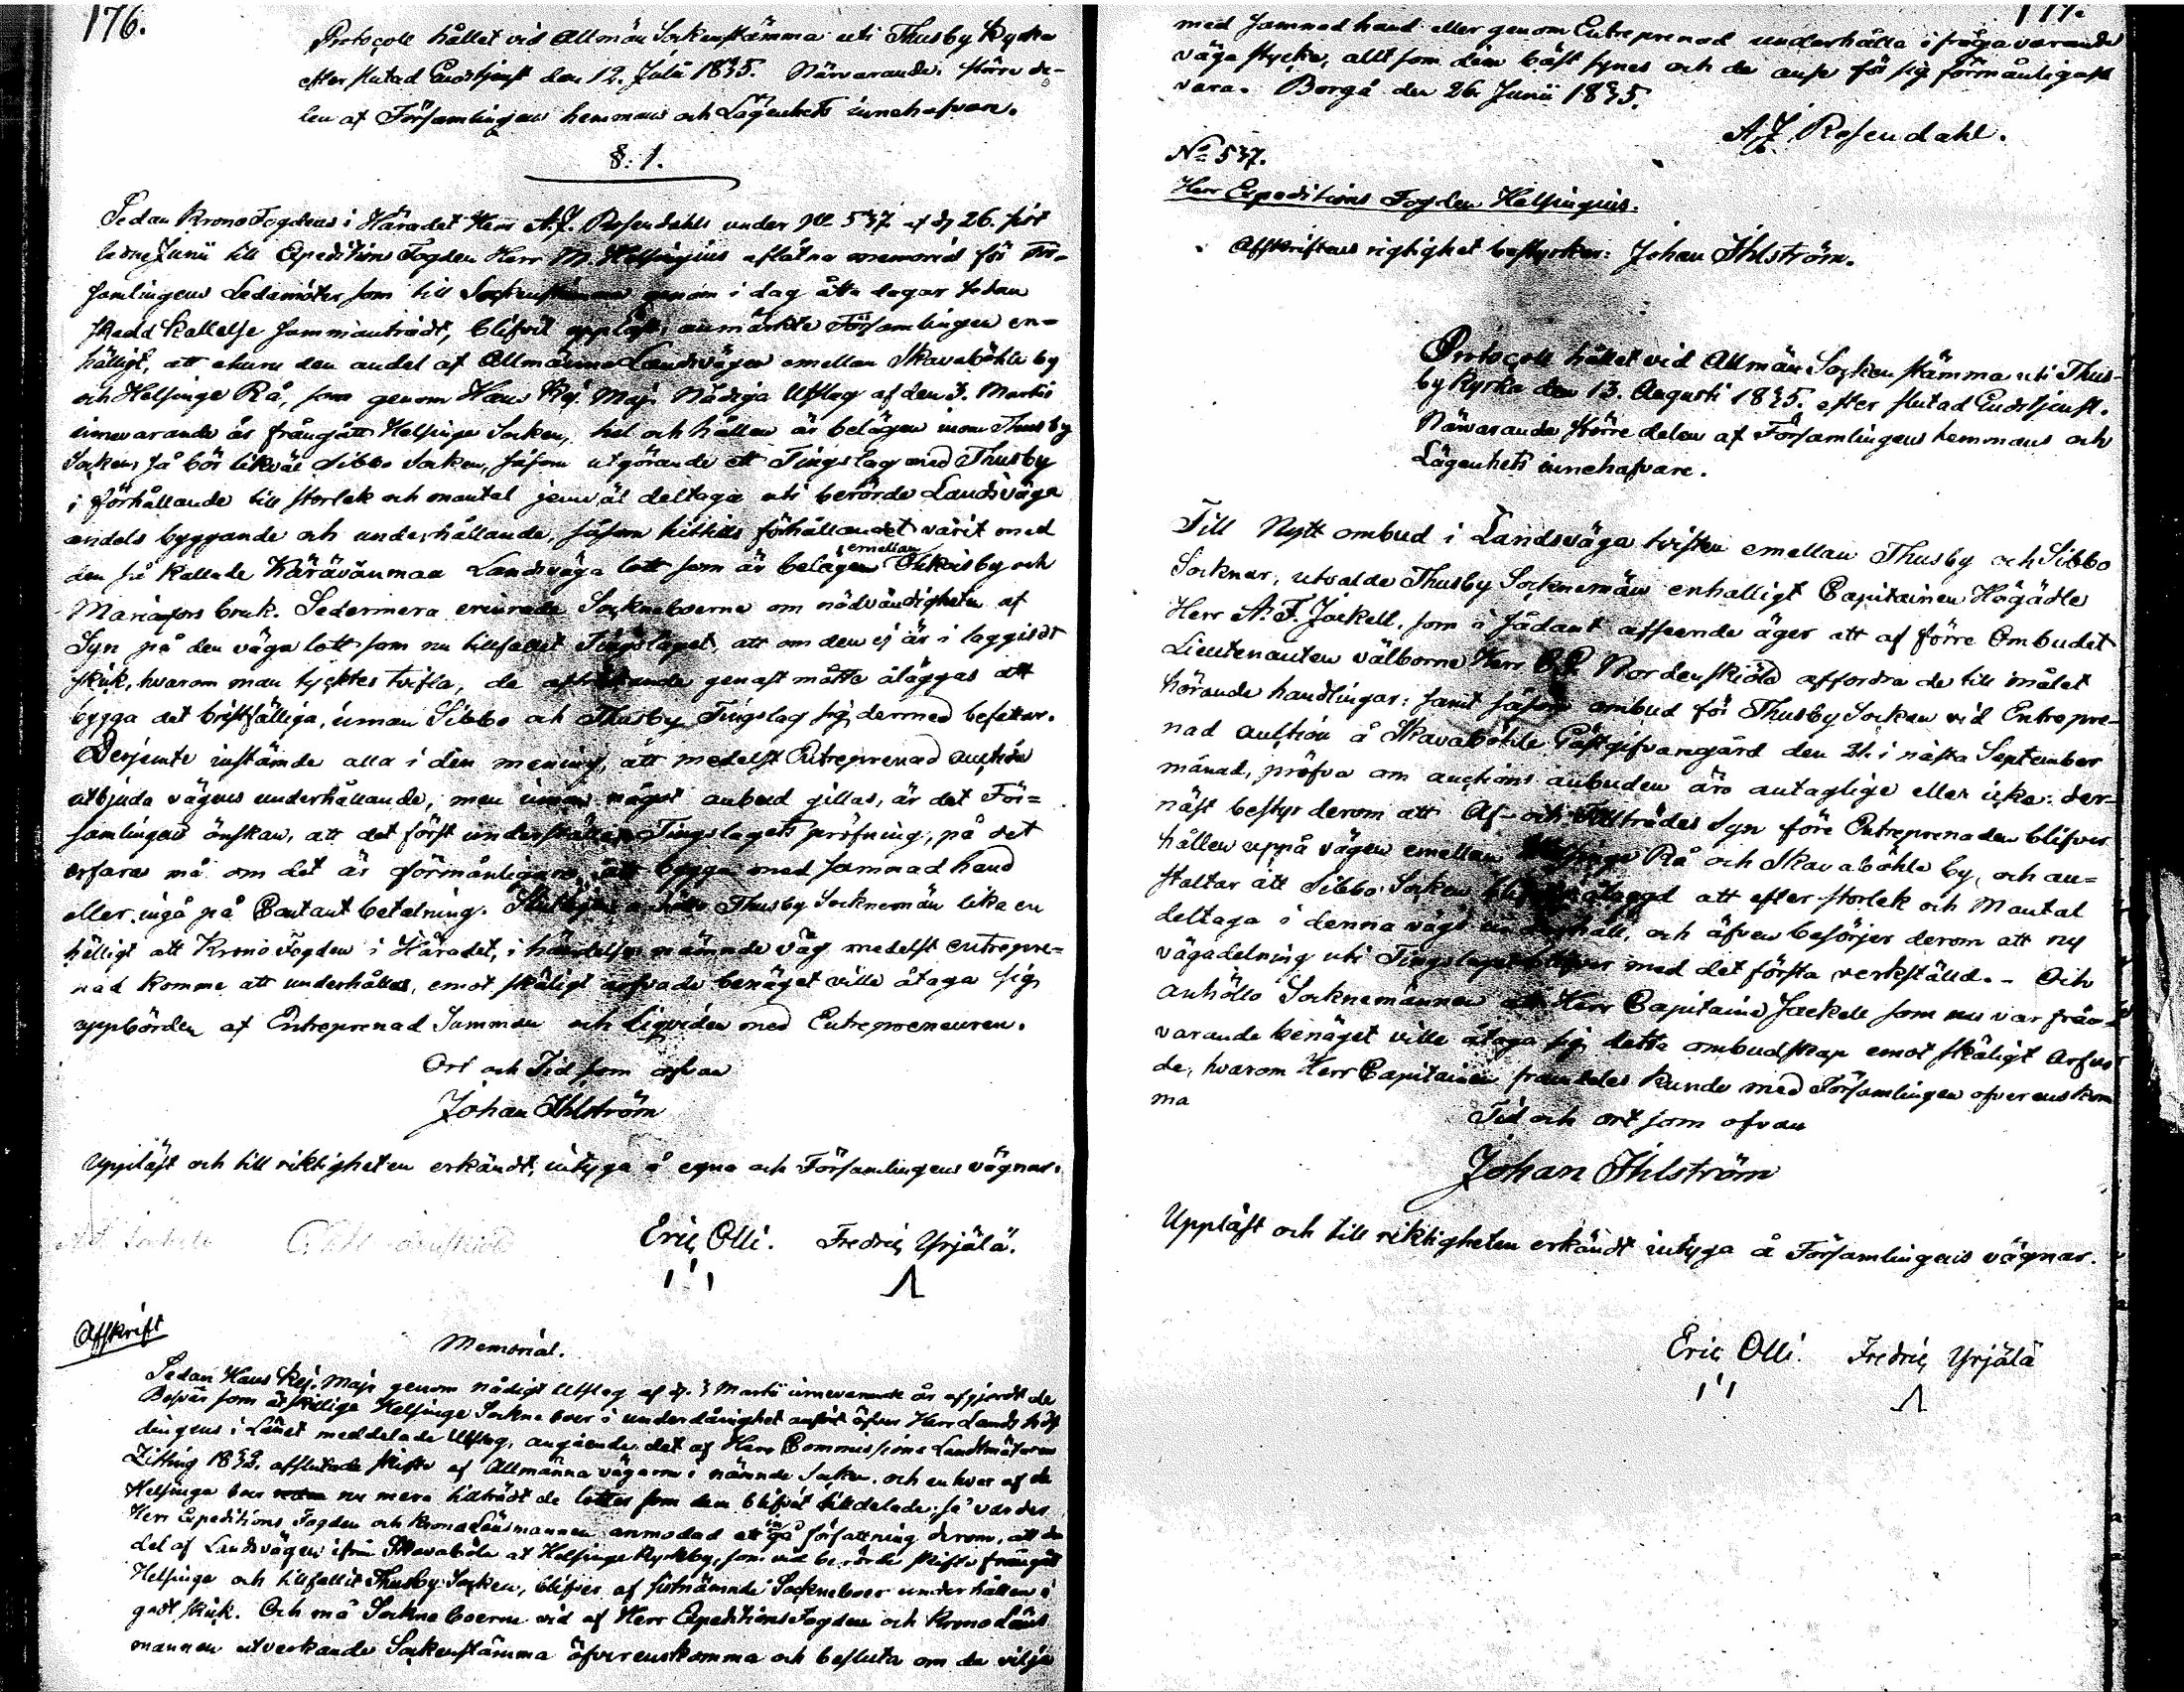 176.
Protocoll hållet vid Allmän Sockenstämma uti Thusby Kyrka
efter slutad Gudstjenst den 12. Julii 1835. Närvarande större de-
len af Församlingens hemmans och Lägenhets innehafvare.
§. 1.
Sedan KronoFogdens i Häradet Herr A. J. Rosendahls under No 537 af d. 26. sist
ledne Junii till Expeditions Fogden Herr M. Helsingius aflåtna memorial för För-
samlingens Ledamöter som till Sockenstämman genom i dag åtta dagar sedan
skedd kallelse sammanträdt, blifvit uppläst, anmärkte Församlingen en-
hälligt, att ehuru den andel af Allmänna Landsvägen emellan Skavaböhle by
och Helsinge Rå, som genom Hans Kej. Maj:s Nådiga Utslag af den 3. Martii
innevarande år frångått Helsinge Socken, hel och hållen är belägen inom Thusby
Socken, så bör likväl Sibbo Socken, såsom utgörande ett Tingslag med Thusby
i förhållande till storlek och mantal jemväl deltaga uti berörde Landsväga
andels byggande och underhållande, såsom hittills förhållandet varit med
den så kallade Käräväanmaa Landsväga lott som är belägen emellan Ohkaisby och
Mariæfors bruk. Sedermera erinrade Sockneboerne om nödvändigheten af
Syn på den väga lott som nu tillfallit Tingslaget, att om den ej är i laggildt
skick, hvarom man tycktes tvifla, de afträdande genast måtte åläggas att
bygga det bristfälliga, innan Sibbo och Thusby Tingslag sig dermed befattar.
Derjemte instämde alla i den mening, att medelst Entreprenad auction
utbjuda vägens underhållande, men innan något anbud gillas, är det För-
samlingens önskan, att det först underställes Tingslagets pröfning, på det
erfaras må om det är förmånligare att bygga med samnad hand
eller ingå på Contant betalning. Slutligen Thusby Socknemän lika en
hälligt att Krono Fogden i Häradet, i händelse nämnde väg medelst entrepre-
nad komme att underhållas, emot skäligt arfvode benäget ville åtaga sig
uppbörden af Entreprenad Summan och liqviden med Entrepreneuren.
Ort och Tid som ofvan
Johan Ihlström
Uppläst och till riktigheten erkändt, intyga å egna och Församlingens vägnar.
Eric Olli. Fredric Yrjälä.
Affskrift
Memorial.
Sedan Hans Kej. Maj:t genom nådigt Utslag af d. 3 Martii innevarande år afgjordt de
Besvär som åtskillige Helsinge Sockne boer i underdånighet anfört öfver Herr Lands höf
dingens i Länet meddelade Utslag, angående det af Herr Commissions Landtmätaren
Zitting 1832. afslutade skifte af Allmänna vägarne i nämnde Socken, och en hvar af de
Helsinge boer nu mera tillträdt de lotter som dem blifvit tilldelade; så varder
Herr Expeditions Fogden och Krono Länsmannen anmodad att ingå författning derom, att den
del af Landsvägen ifrån Skavaböle at Helsinge Kyrkby, som vid berörde skifte frångått
Helsinge och tillfallit Thusby Socken, blifver af sistnämnde Sockneboer underhållen i
godt skick. Och må Sockne boerne vid af Herr ExpeditionsFogden och Krono Läns
mannen utverkande Sockenstämma öfverenskomma och besluta om de vilja
177.
med samnad hand eller genom Entreprenad underhålla i fråga varande
väga stycke, allt som dem bäst synes och de anse för sig förmånligast
vara. Borgå den 26 Junii 1835.
A. J. Rosendahl.
No 537.
Herr Expeditions Fogden Helsingius.
Affskriftens rigtighet bestyrker: Johan Ihlström.
Protocoll hållet vid Allmän Sockenstämma uti Thus-
by Kyrka den 13. Augusti 1835. efter slutad Gudstjenst.
Närvarande större delen af Församlingens hemmans och
Lägenhets innehafvare.
Till Nytt ombud i Landsväga tvisten emellan Thusby och Sibbo
Socknar, utvalde Thusby Socknemän enhälligt Capitainen Högädle
Herr A. F. Jackell, som i sådant afseende äger att af förre Ombudet
Lieutenanten välborne Herr Nordenskiöld affordra de till målet
hörande handlingar; samt såsom ombud för Thusby Socken vid Entrepre-
nad auction å Skavaböhle Gästgifvaregård den 21. i nästa September
månad, pröfva om auctions anbuden äro antaglige eller icke; der-
näst bestyr derom att Af- och Tillträdes Syn före Entreprenaden blifver
hållen uppå vägen emellan Helsinge Rå och Skavaböhle by, och an-
staltar att Sibbo Socken blifver ålagd att efter storlek och Mantal
deltaga i denna vägs underhåll, och äfven besörjer derom att ny
vägadelning uti Tingslaget blifver med det första verkställd. - Och
anhöllo Socknemännen att Herr Capitaine Jackell som nu var från-
varande benäget ville åtaga sig detta ombudskap emot skäligt arfvo
de, hvarom Herr Capitainen framdeles kunde med Församlingen öfverenskom
ma
Tid och ort som ofvan
Johan Ihlström
Uppläst och till riktigheten erkändt intyga å Församlingens vägnar.
Eric Olli. Fredric Yrjälä